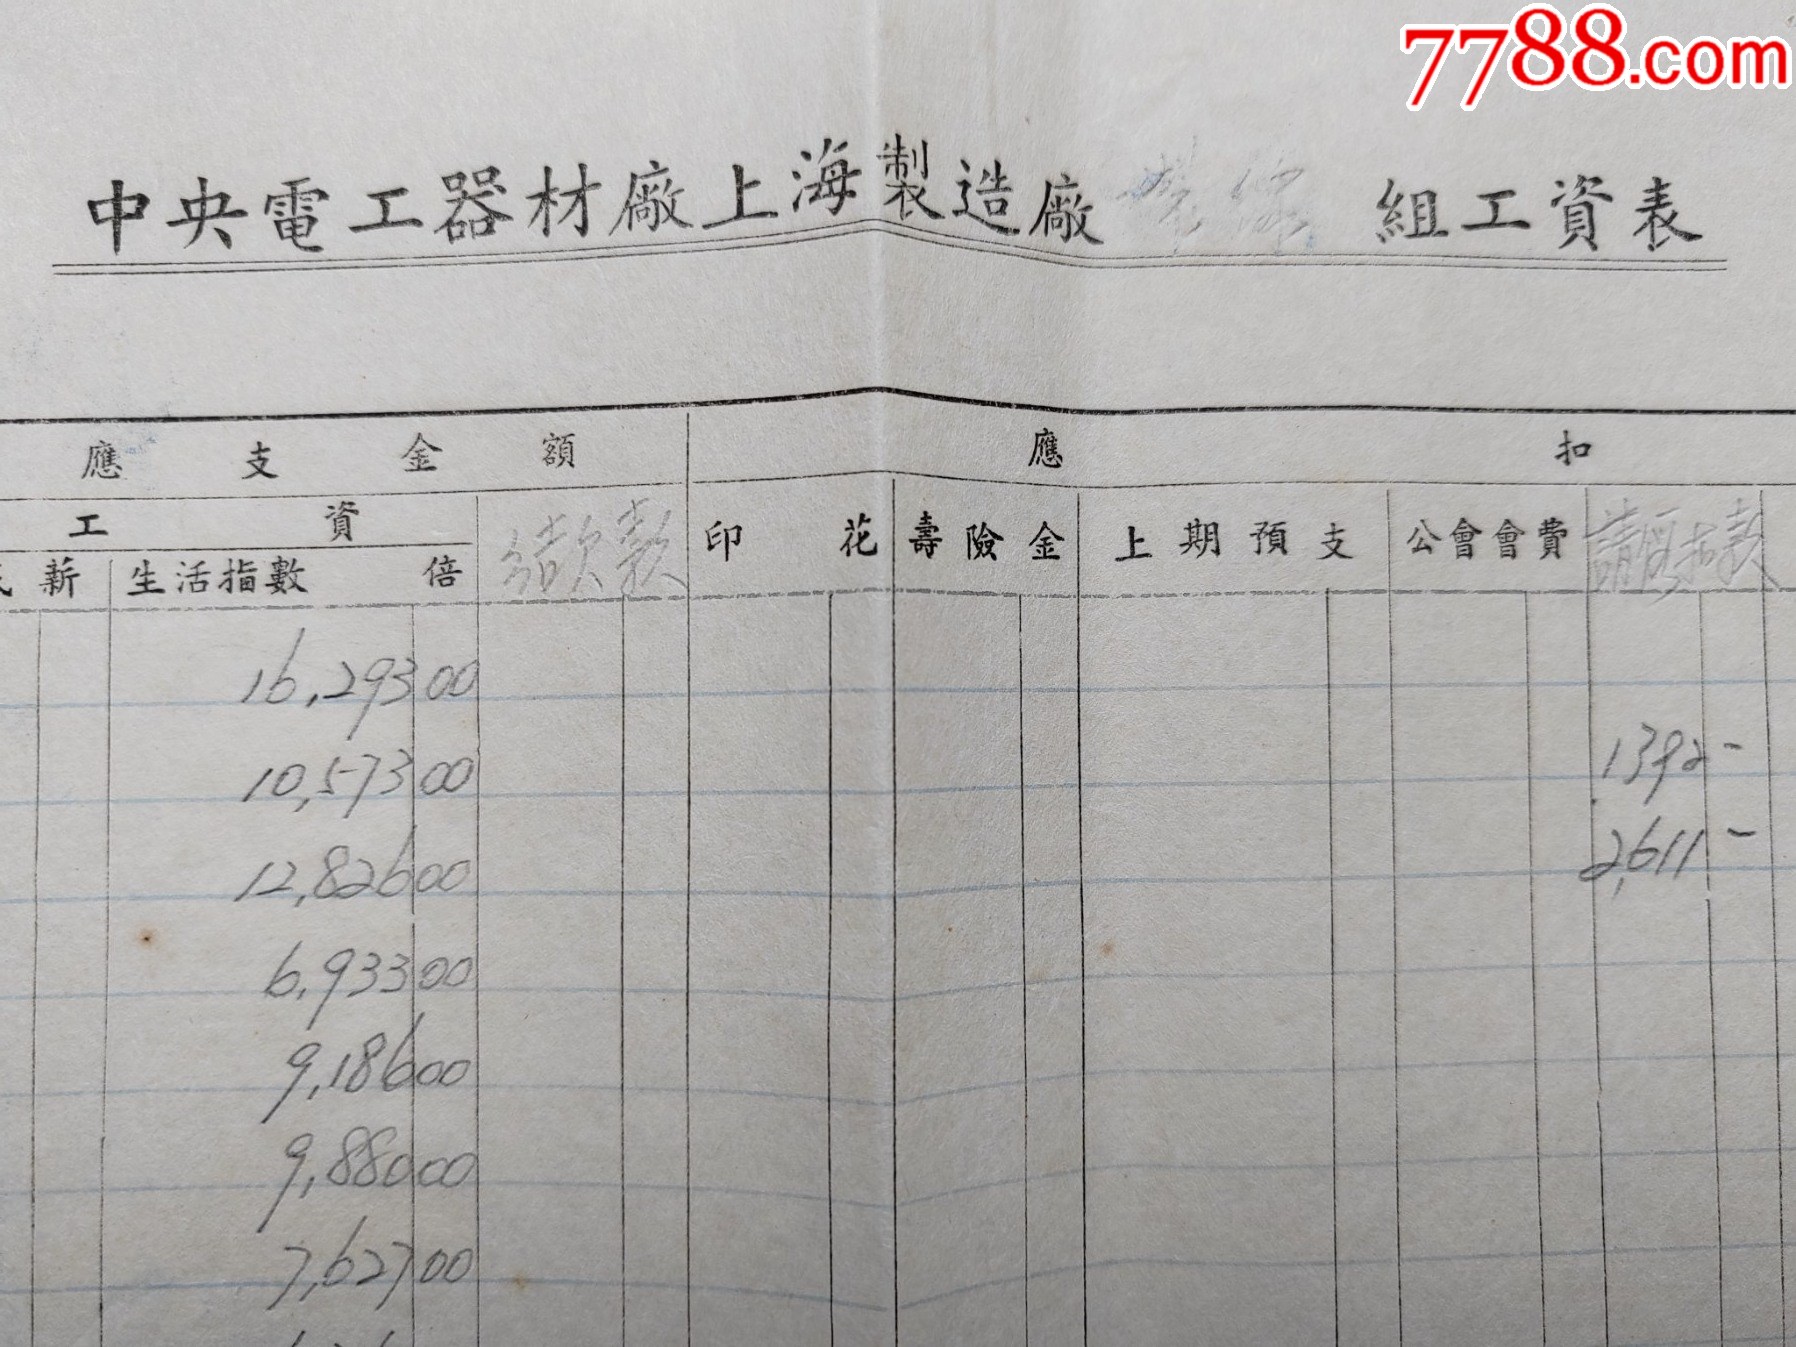 7788.com
中央電工器材廠上海製造廠 組工資表
應支金額 應扣
工資 欠款 印花 壽險金 上期預支 公會會費 請假扣款
薪 生活指數 倍
16,293 00
10,573 00 1392-
12,826 00 2,611-
6,933 00
9,186 00
9,880 00
7,627 00